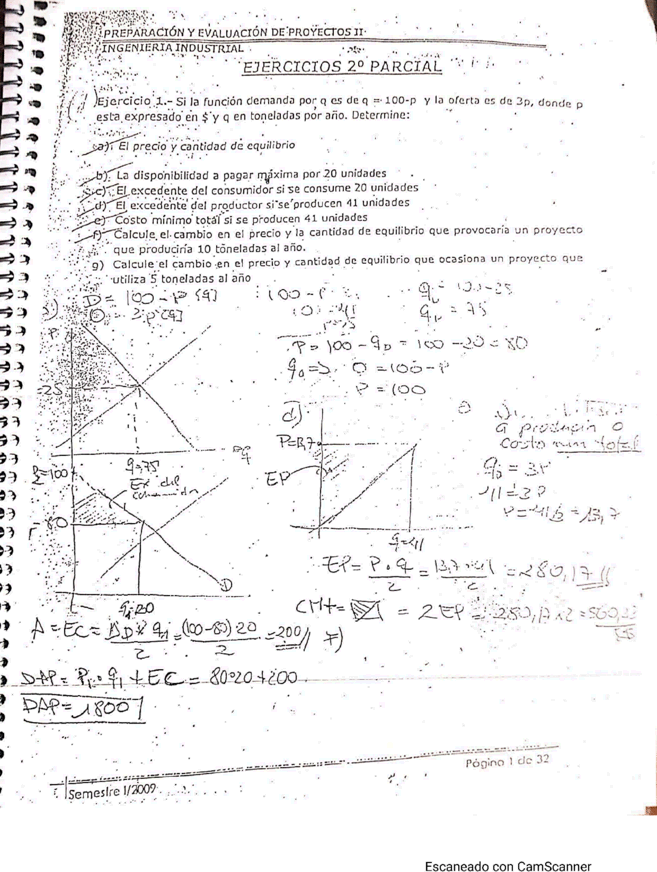 PREPARACIÓN Y EVALUACIÓN DE PROYECTOS II
INGENIERIA INDUSTRIAL
EJERCICIOS 2º PARCIAL
Ejercicio 1.- Si la función demanda por q es de q = 100-p y la oferta es de 3p, donde p
esta expresado en $ y q en toneladas por año. Determine:
a). El precio y cantidad de equilibrio
b). La disponibilidad a pagar máxima por 20 unidades
c). El excedente del consumidor si se consume 20 unidades
d) El excedente del productor si se producen 41 unidades
e) Costo mínimo total si se producen 41 unidades
f) Calcule el cambio en el precio y la cantidad de equilibrio que provocaría un proyecto
que produciría 10 toneladas al año.
g) Calcule el cambio en el precio y cantidad de equilibrio que ocasiona un proyecto que
utiliza 5 toneladas al año
D = 100 - P
= 100-25
= 75
P = 100 - q_D = 100 - 20 = 80
q_0 => 0 = 100 - P
P = 100
d)
a producir 0
costo min total
= 3P
41 = 3P
= 13,7
25
q=75
P=100
Ex del
consumidor
80
D
q_1=20
EP
q=41
EP = P·q/2 = 13,7·41/2 = 280,17
= 2EP = 280,17x2 =
A = EC = = (100-80)20/2 = 200
DAP = P_1·q_1 + EC = 80·20+200
DAP = 1800
Página 1 de 32
Semestre I/2009
Escaneado con CamScanner